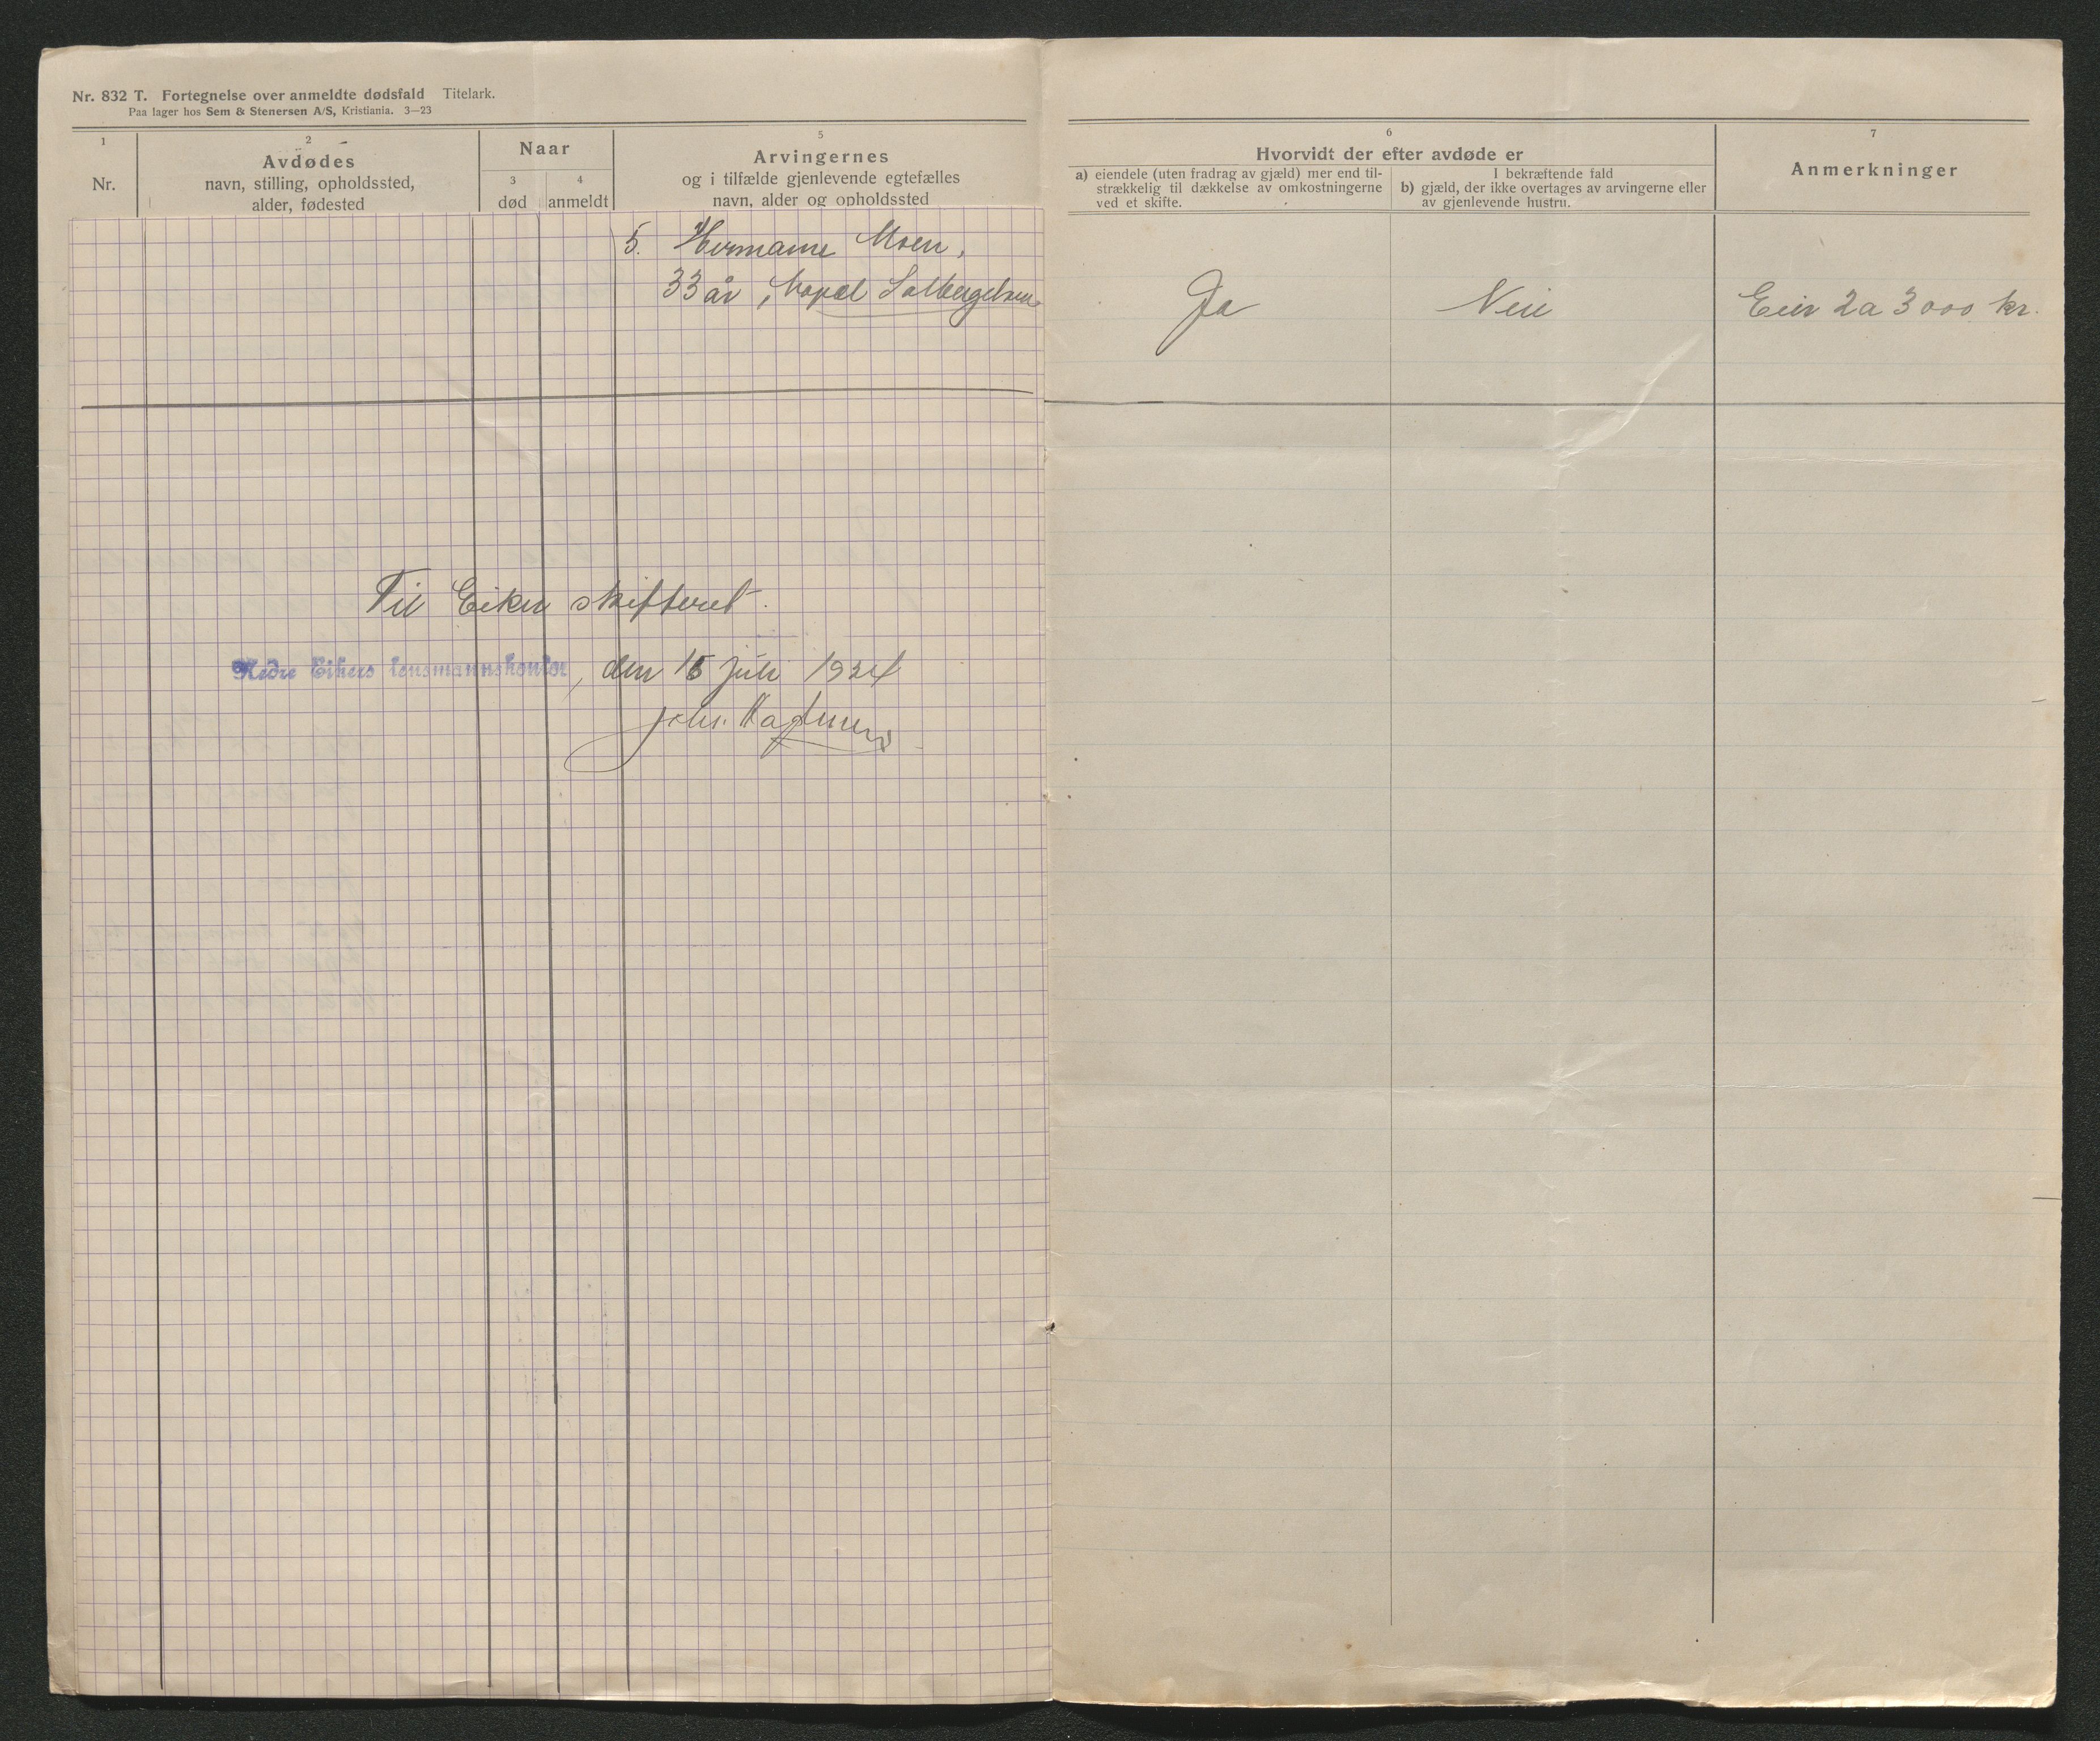 Nr. 832 T. Fortegnelse over anmeldte dødsfald Titelark.
Paa lager hos Sem & Stenersen A/S, Kristiania. 3—23
1
Nr.
2
Avdødes
navn, stilling, opholdssted,
alder, fødested
Naar
3
død
4
anmeldt
5
Arvingernes
og i tilfælde gjenlevende egtefælles
navn, alder og opholdssted
6
Hvorvidt der efter avdøde er
a) eiendele (uten fradrag av gjæld) mer end til-
strækkelig til dækkelse av omkostningerne
ved et skifte.
I bekræftende fald
b) gjæld, der ikke overtages av arvingerne eller
av gjenlevende hustru.
7
Anmerkninger
5. Hermame Moen,
33 år, Solbergelven
Ja
Nei
Eier 2 a 3000 kr.
Til Eiker skifteret.
Nedre Eikers lensmannskontor, den 15 juli 1924
Johs.